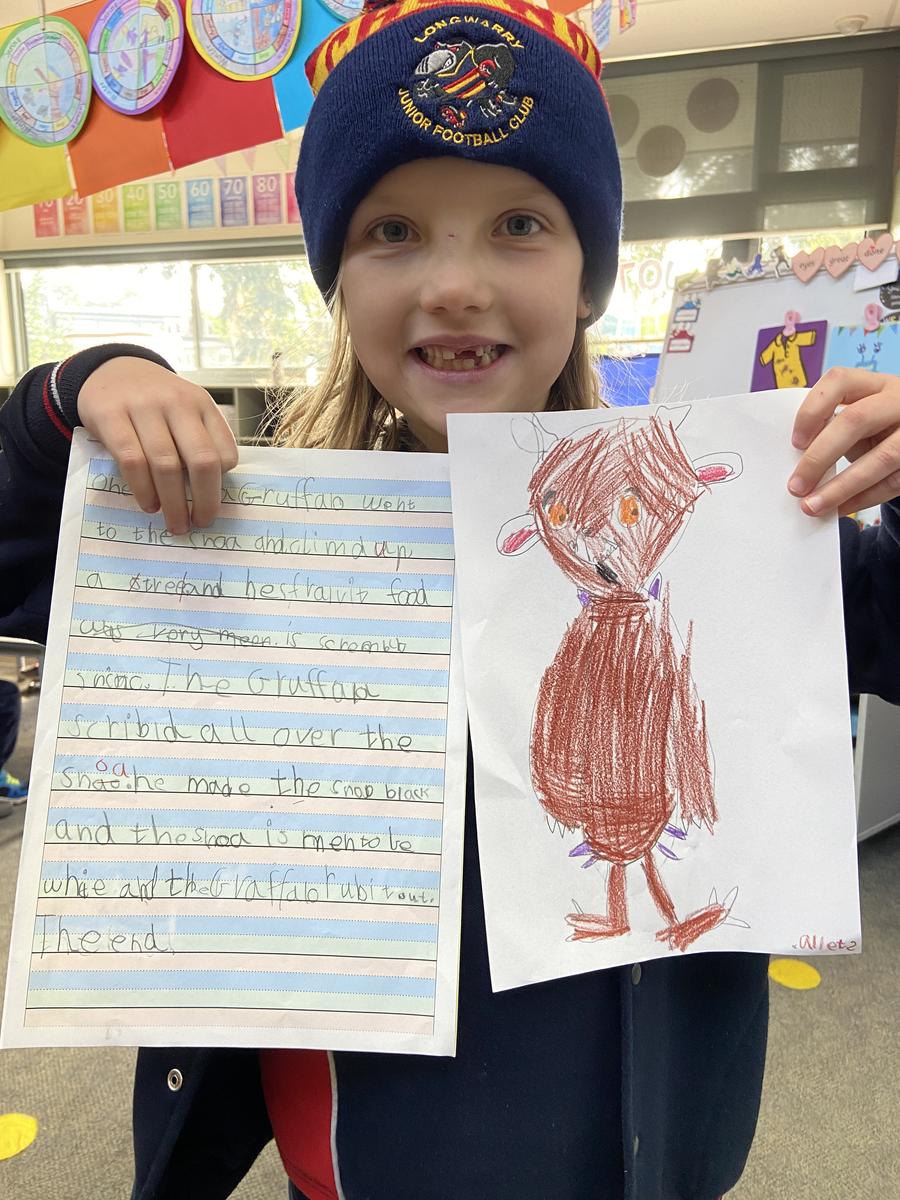 LONGWARRY
JUNIOR FOOTBALL CLUB
20 30 40 50 60 70 80
eyes great done
a Gruffalo went
to the snoa and climd up
a stree and hes fraivit food
was very meen. is scrombt
The Gruffalo
scribid all over the
oa
snao. he made the snoa black
and the snoa is men to be
whie and the Gruffalo rubit out.
The end.